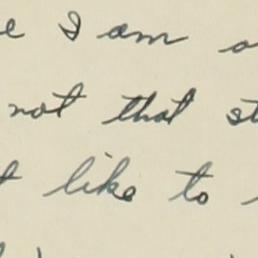 I am
not that
like to